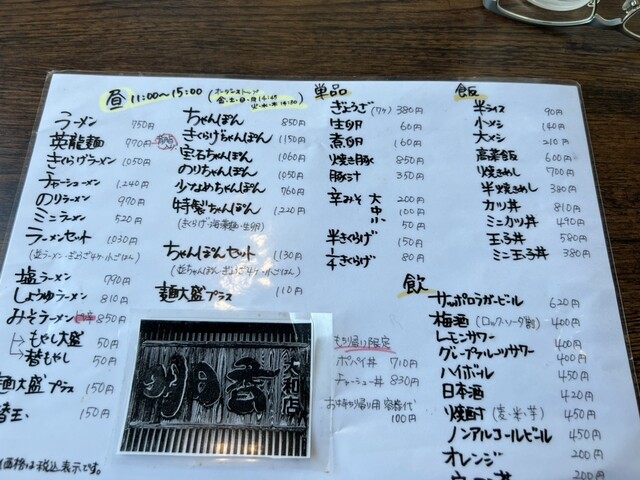 昼 11:00〜15:00 (オーダーストップ
ラーメン 750円
英龍麺 970円
きくらげラーメン 1050円
チャーシューメン 1,240円
のりラーメン 970円
ミニラーメン 520円
ラーメンセット 1030円
(並ラーメン・ぎょうざ4ケ・小ごはん)
塩ラーメン 790円
しょうゆラーメン 810円
みそラーメン 850円
→もやし大盛 50円
→替もやし 50円
麺大盛プラス 150円
替玉 150円
価格は税込表示です。
ちゃんぽん 850円
きくらげちゃんぽん 1150円
宝石ちゃんぽん 1060円
のりちゃんぽん 1050円
少なめちゃんぽん 760円
特製ちゃんぽん 1,220円
(きくらげ・海藻麺・生卵)
ちゃんぽんセット 1130円
(並ちゃんぽん・ぎょうざ4ケ・小ごはん)
麺大盛プラス 110円
明香
大利店
単品
ぎょうざ (7ケ) 380円
生卵 60円
煮卵 160円
焼き豚 850円
豚汁 350円
辛みそ 大 200円
中 100円
小 50円
半きくらげ 150円
1/4きくらげ 80円
もち帰り限定
ポパイ丼 710円
チャーシュー丼 830円
お持ち帰り用 容器代
100円
飯
半ライス 90円
小メシ 140円
大メシ 210円
高菜飯 600円
焼きめし 700円
半焼きめし 380円
カツ丼 810円
ミニカツ丼 490円
玉子丼 580円
ミニ玉子丼 380円
飲
サッポロラガービール 620円
梅酒 (ロック・ソーダ割) 400円
レモンサワー 400円
グレープフルーツサワー 400円
ハイボール 450円
日本酒 420円
焼酎 (麦・米・芋) 450円
ノンアルコールビール 450円
オレンジ 200円
200円